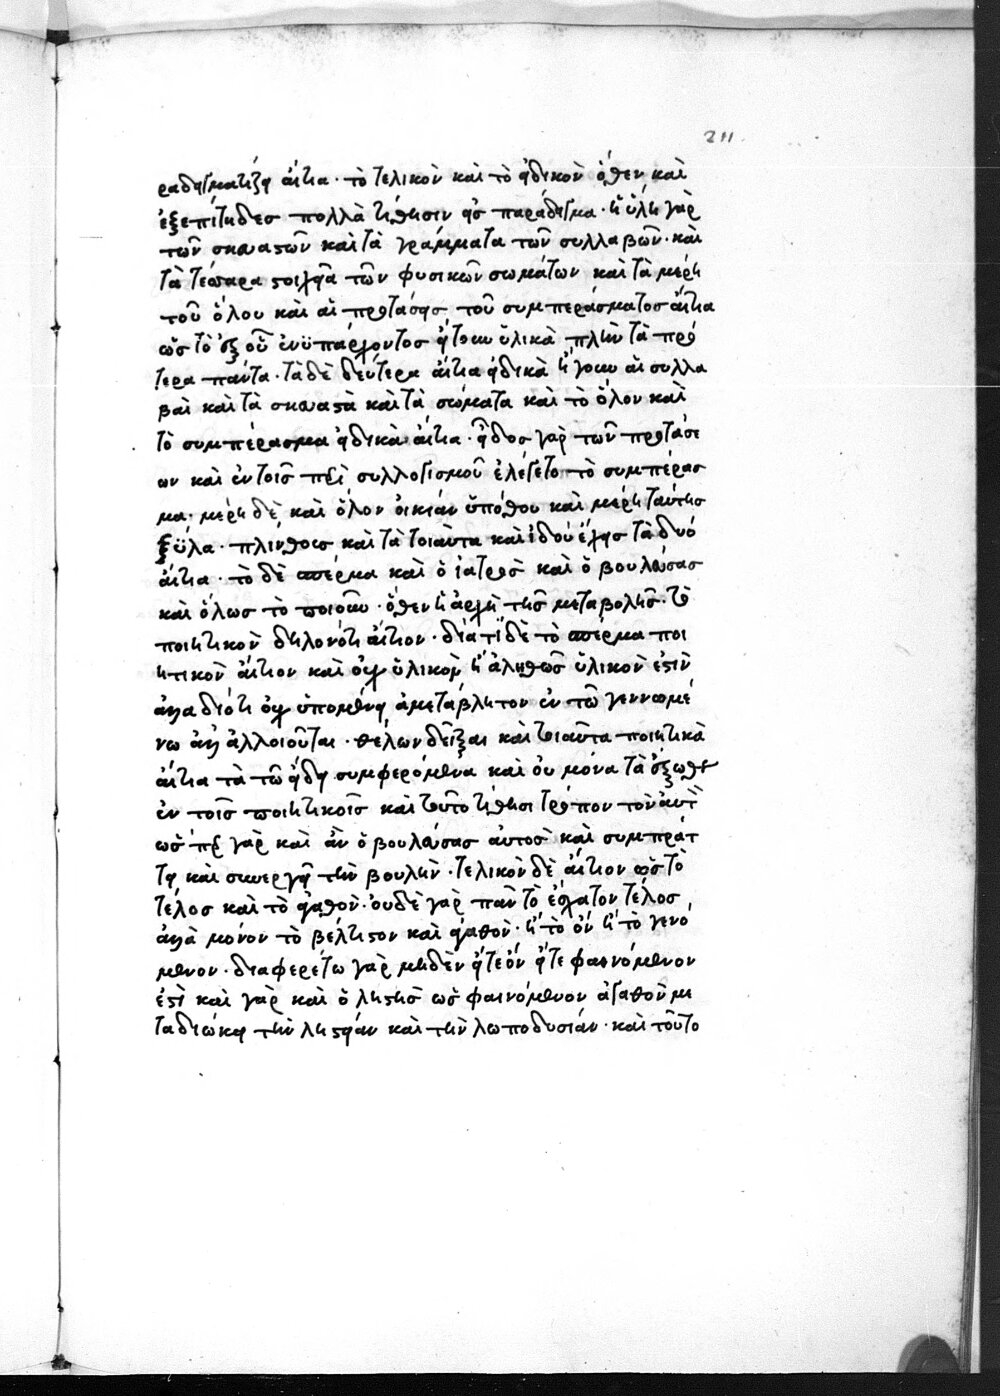 211
ραδειγματίζει αἴτια· τὸ τελικὸν καὶ τὸ εἰδικὸν ὅθεν καὶ
ἐξεπίτηδες πολλὰ τίθησιν εἰς παράδειγμα· ἡ ὕλη γὰρ
τῶν σκευαστῶν καὶ τὰ γράμματα τῶν συλλαβῶν· καὶ
τὰ τέσσαρα στοιχεῖα τῶν φυσικῶν σωμάτων καὶ τὰ μέρη
τοῦ ὅλου καὶ αἱ προτάσεις τοῦ συμπεράσματος αἴτια
ὡς τὸ ἐξ οὗ ἐνϋπάρχοντος ἤτοι ὑλικὰ πλὴν τὰ πρό
τερα πάντα· τὰ δὲ δεύτερα αἴτια εἰδικὰ ἤγουν αἱ συλλα
βαὶ καὶ τὰ σκευαστὰ καὶ τὰ σώματα καὶ τὸ ὅλον καὶ
τὸ συμπέρασμα εἰδικὰ αἴτια· εἶδος γὰρ τῶν προτάσε
ων καὶ ἐν τοῖς περὶ συλλογισμοῦ ἐλέγετο τὸ συμπέρασ
μα· μέρη δὲ καὶ ὅλον οἰκίαν ὑπόθου καὶ μέρη ταύτης
ξύλα· πλίνθους καὶ τὰ τοιαῦτα καὶ ἰδού ἔχεις τὰ δυό
αἴτια· τὸ δὲ σπέρμα καὶ ὁ ἰατρὸς καὶ ὁ βουλεύσας
καὶ ὅλως τὸ ποιοῦν· ὅθεν ἡ ἀρχὴ τῆς μεταβολῆς· τὸ
ποιητικὸν δηλονότι αἴτιον· διατί δὲ τὸ σπέρμα ποι
ητικὸν αἴτιον καὶ οὐχ ὑλικὸν ἢ ἀληθῶς ὑλικὸν ἐστὶν
ἀλλα διότι οὐχ ὑπομένει ἀμετάβλητον ἐν τῶ γεννωμέ
νω ἀλλ ἀλλοιοῦται· θέλων δεῖξαι καὶ τοιαῦτα ποιητικὰ
αἴτια τὰ τῶ εἴδει συμφερόμενα καὶ οὐ μόνα τὰ ἔξωθεν
ἐν τοῖς ποιητικοῖς καὶ τοῦτο τίθησι τρόπον τὸν αὐτ
ὥς περ γὰρ καὶ ἂν ὁ βουλεύσας αὐτὸς καὶ συμπράτ
τει καὶ συνεργεῖ τὴν βουλὴν· τελικὸν δὲ αἴτιον ὡς τὸ
τέλος καὶ τὸ ἀγαθὸν· οὐδὲ γὰρ πᾶν τὸ ἔσχατον τέλος
ἀλλὰ μόνον τὸ βέλτιστον καὶ ἀγαθὸν· ἢ τὸ ὂν ἢ τὸ γενό
μενον· διαφερέτω γὰρ μηδὲν εἴτε ὂν εἴτε φαινόμενον
ἐστὶ καὶ γὰρ καὶ ὁ ληστὴς ὡς φαινόμενον ἀγαθὸν με
ταδιώκει τὴν ληστείαν καὶ τὴν λωποδυσίαν· καὶ τοῦτο